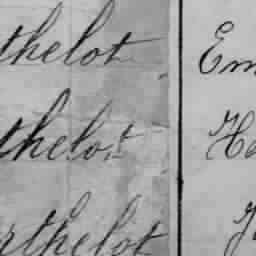 thelot Em
thelot He
rthelot J